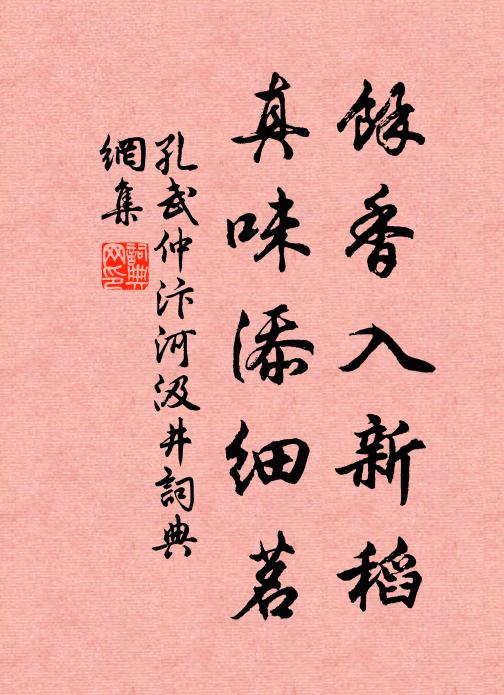 餘香入新稻
真味添細茗
孔武仲汴河汲井詞典
網集
詞典网印